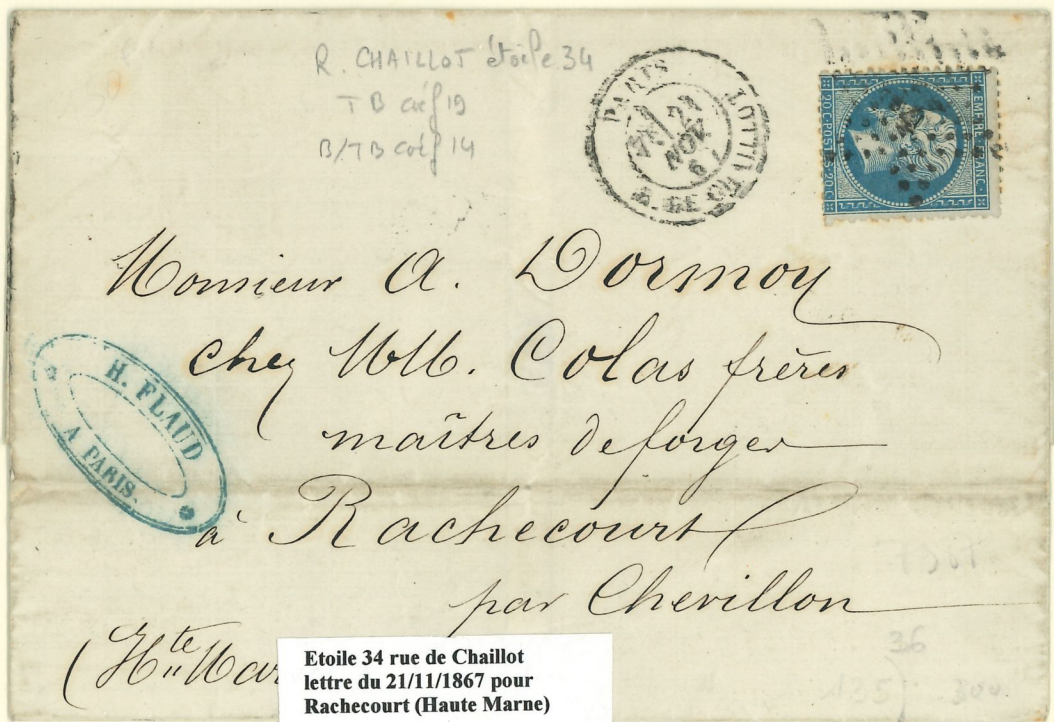 R. CHAILLOT étoile 34
TB coef 19
B/TB coef 14
PARIS
NOV
R. DE CHAILLOT
EMPIRE FRANC
20 C POSTES 20 C
Monsieur A. Dormoy
chez MM. Colas frères
maîtres de forges
à Rachecourt
par Chevillon
(Hte Mar
H. FLAUD
A PARIS.
1867
36
135
300
Etoile 34 rue de Chaillot
lettre du 21/11/1867 pour
Rachecourt (Haute Marne)